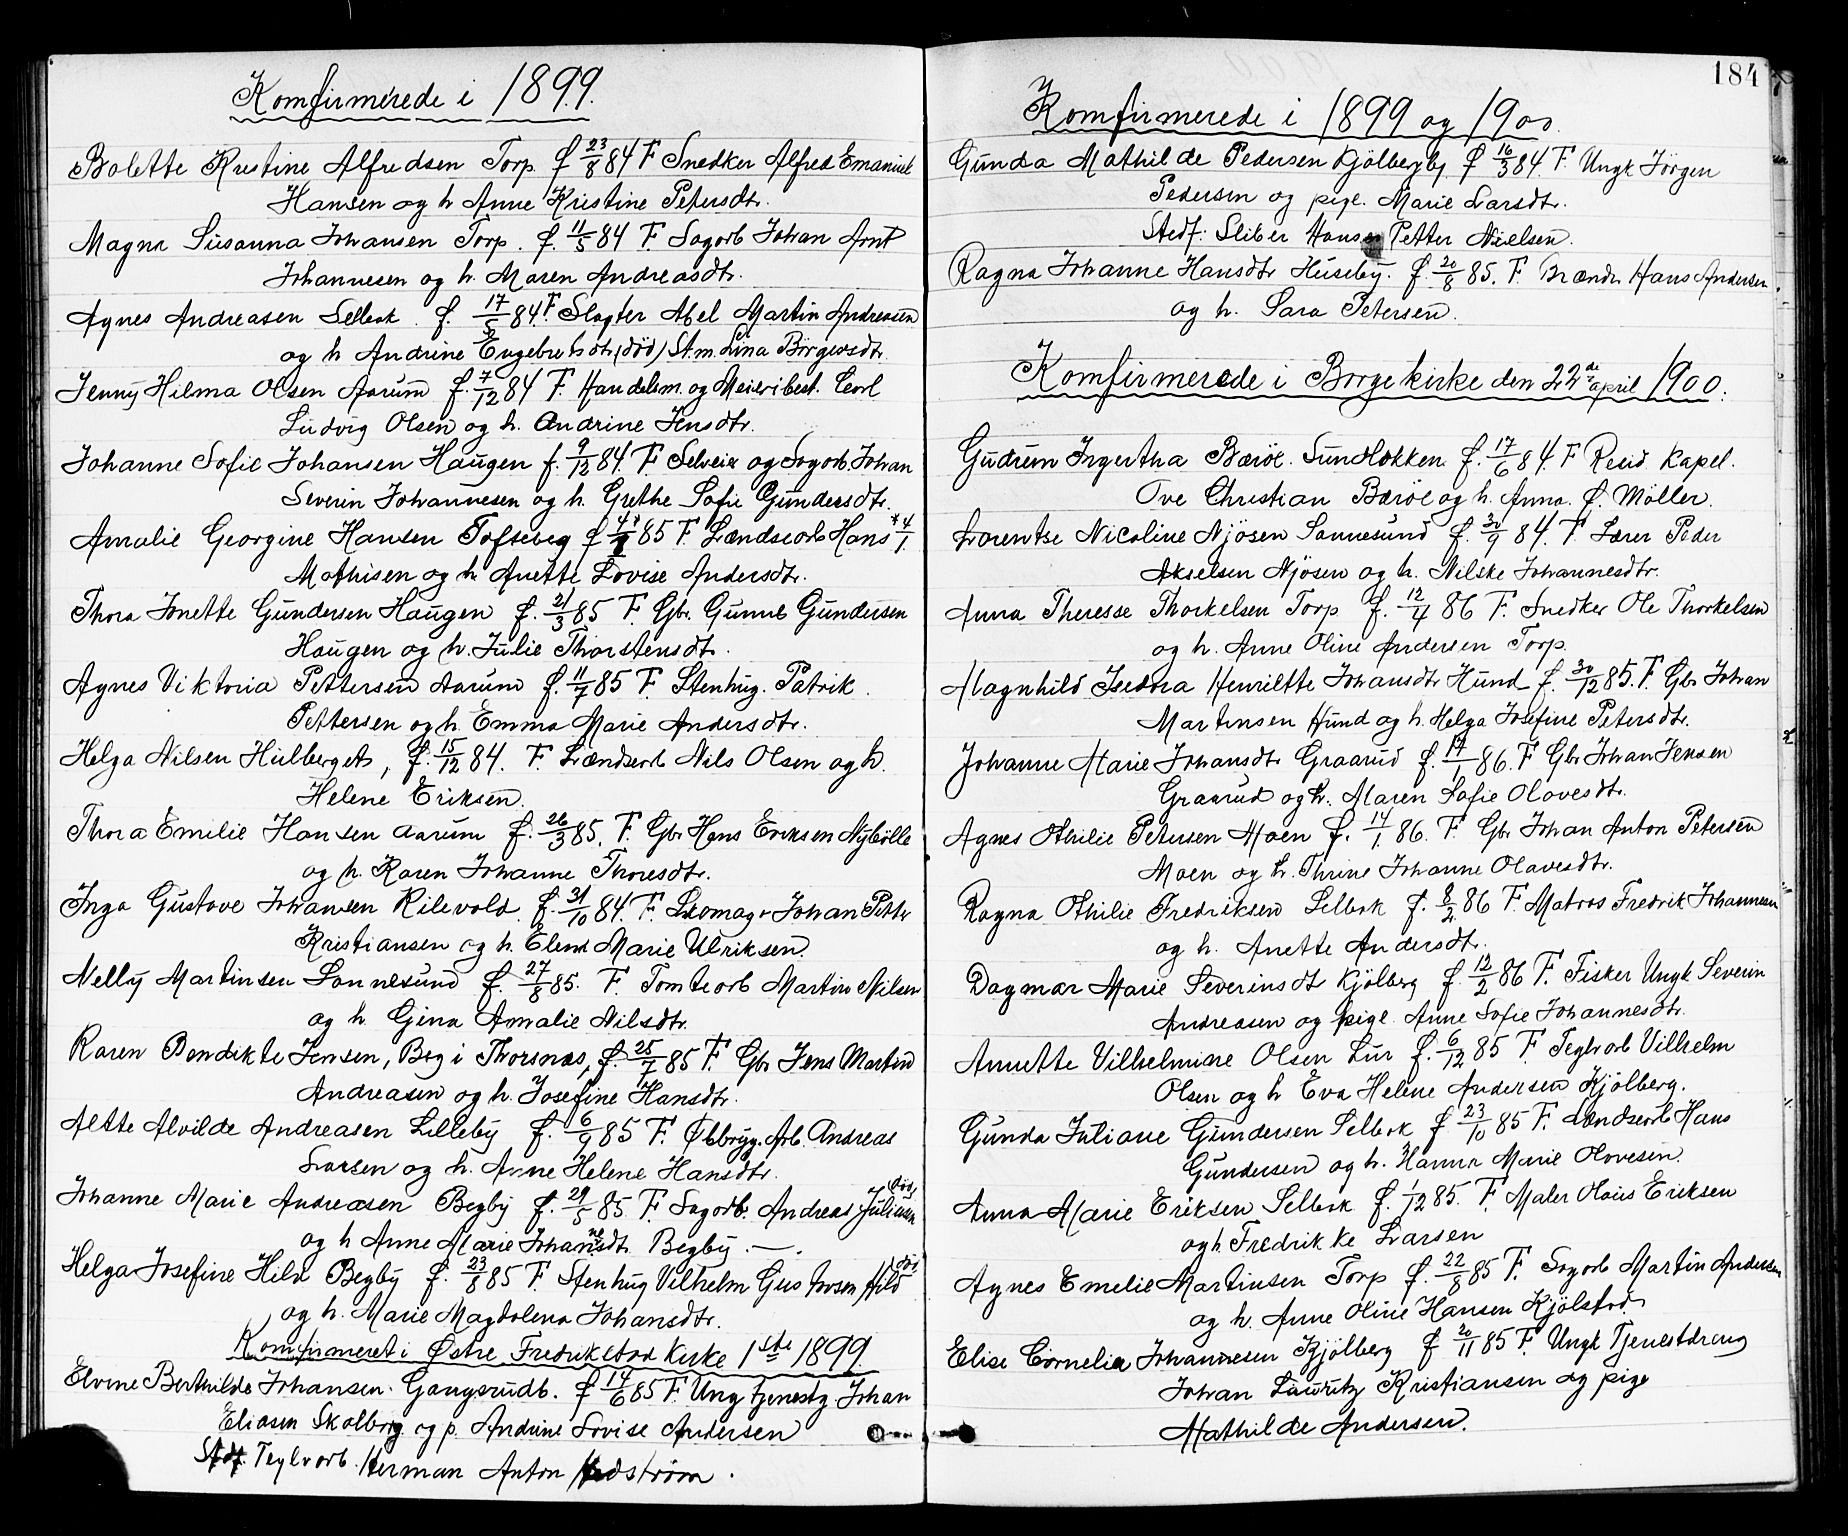 Komfirmerede i 1899.
Bolette Kristine Alfredsen Torp f 23/8 84 F Snedker Alfred Emanuel
Hansen og h Anne Kristine Petersdtr.
Magna Susanna Johansen Torp. f. 11/5 84 F Sagarb Johan Arnt
Johannesen og h. Maren Andreasdtr.
Agnes Andreasen Selbak. f. 17/5 84. F Slagter Abel Martin Andreasen
og h Andrine Engebretsdtr (død) St.m. Lina Børgersdtr
Jenny Hilma Olsen Aarum f. 7/12 84 F. Handelsm. og Meieribest. Carl
Ludvig Olsen og h. Andrine Jensdtr.
Johanne Sofie Johansen Haugen f. 9/12 84. F Selveier og Sagarb. Johan
Severin Johannesen og h. Grethe Sofie Gundersdtr.
Amalie Georgine Hansen Tofteberg f 85 F. Landsarb Hans * 4/1
Mathisen og h Anette Lovise Andersdtr.
Thora Jonette Gundersen Haugen f. 21/3 85 F. Gbr. Gunnul Gundersen
Haugen og h. Julie Thorstensdtr.
Agnes Viktoria Pettersen Aarum f. 11/7 85 F. Stenhug. Patrik
Pettersen og h. Emma Marie Andersdtr.
Helga Nilsen Hulberget, f. 15/12 84. F. Landsarb Nils Olsen og h.
Helene Eriksen.
Thora Emilie Hansen Aarum f. 26/3 85. F. Gbr Hans Eriksen Nybølle
og h. Karen Johanne Thoresdtr.
Inga Gustave Johansen Kilevold f. 31/10 84. F. Skomagr Johan Petter
Kristiansen og h. Elend Marie Ulriksen.
Nelly Martinsen Sannesund f. 27/8 85. F. Tomtearb Martin Nilsen
og h. Gina Amalie Nilsdtr.
Karen Bendikte Jensen, Beg i Thorsnæs, f. 25/7 85 F. Gbr Jens Martin
Andreasen og h. Josefine Hansdtr.
Alette Alvilde Andreasen Lilleby f. 6/9 85 F. Ølbryg. Arb. Andreas
Larsen og h. Anne Helene Hansdtr.
Johanne Marie Andreasen Begby f. 29/5 85. F. Sagarb. Andreas Juliusen død
og h Anne Marie Johannesdtr. Begby. —.
Helga Josefine Hild Begby f. 23/8 85 F. Stenhug Vilhelm Gustavsen Hild død
og h. Marie Magdalena Johansdtr.
Komfirmeret i Østre Fredrikstad kirke 1ste 1899.
Elvine Berthilde Johansen. Gangsrudb. f 14/6 85 F. Ung tjenestg Johan
Eliasen Skalberg og p. Andrine Lovise Andersen
Stdf. Teglvarb. Herman Anton Hedstrøm.
184
Komfirmerede i 1899 og 1900.
Gunda Mathilde Pedersen Kjølbergb. f 16/3 84. F. Ungk Jørgen
Pedersen og pige. Marie Larsdtr.
Stedf: Sliber Hans Petter Nielsen.
Ragna Johanne Hansdtr Huseby. f. 20/8 85. F. Brændr Hans Andersen
og h. Sara Petersen.
Komfirmerede i Borge kirke den 22de april 1900.
Gudrun Ingertha Barøe. Sundløkken f. 17/6 84. F Resid Kapel.
Ove Christian Barøe og h. Anna. f. Møller.
Lorentse Nicoline Njøsen Sannesund f. 30/9 84. F. Lærer Peder
Akselsen Njøsen og h. Nilske Johannesdtr.
Anna Theresse Thorkelsen Torp f. 12/4 86 F. Snedker Ole Thorkelsen
og h. Anne Oline Andersen Torp.
Magnhild Isedora Henriette Johansdtr Hund f. 30/12 85. F. Gbr Johan
Martinsen Hund og h. Helga Josefine Petersdtr.
Johanne Marie Johansdtr Graarud f. 17/1 86. F Gbr Johan Jensen
Graarud og h. Maren Sofie Olavesdtr.
Agnes Othilie Petersen Moen f. 14/1 86. F. Gbr Johan Anton Petersen
Moen og h. Thrine Johanne Olavesdtr.
Ragna Othilie Fredriksen Selbak f. 8/2 86 F. Matros Fredrik Johannesen
og h. Anette Andersdtr.
Dagmar Marie Severinsdtr Kjølberg f. 12/2 86 F. Fisker Ungk Severin
Andreasen og pige. Anne Sofie Johannesdtr.
Annette Vilhelmine Olsen Lur f. 6/12 85 F Teglvarb Vilhelm
Olsen og h Eva Helene Andersen Kjølberg.
Gunda Juliane Gundersen Selbak f 23/10 85 F. Landsarb Hans
Gundersen og h. Hanna Marie Olavesen.
Anna Marie Eriksen Selbak f. 1/12 85. F. Maler Olaus Eriksen
og h Fredrikke Larsen
Agnes Emelie Martinsen Torp f. 22/8 85 F. Sagarb Martin Andersen
og h. Anne Oline Hansen Kjølstad
Elise Cornelia Johannesen Kjølberg f 20/11 85 F. Ungk Tjenestdreng
Johan Lauritz Kristiansen og pige
Mathilde Andersen.